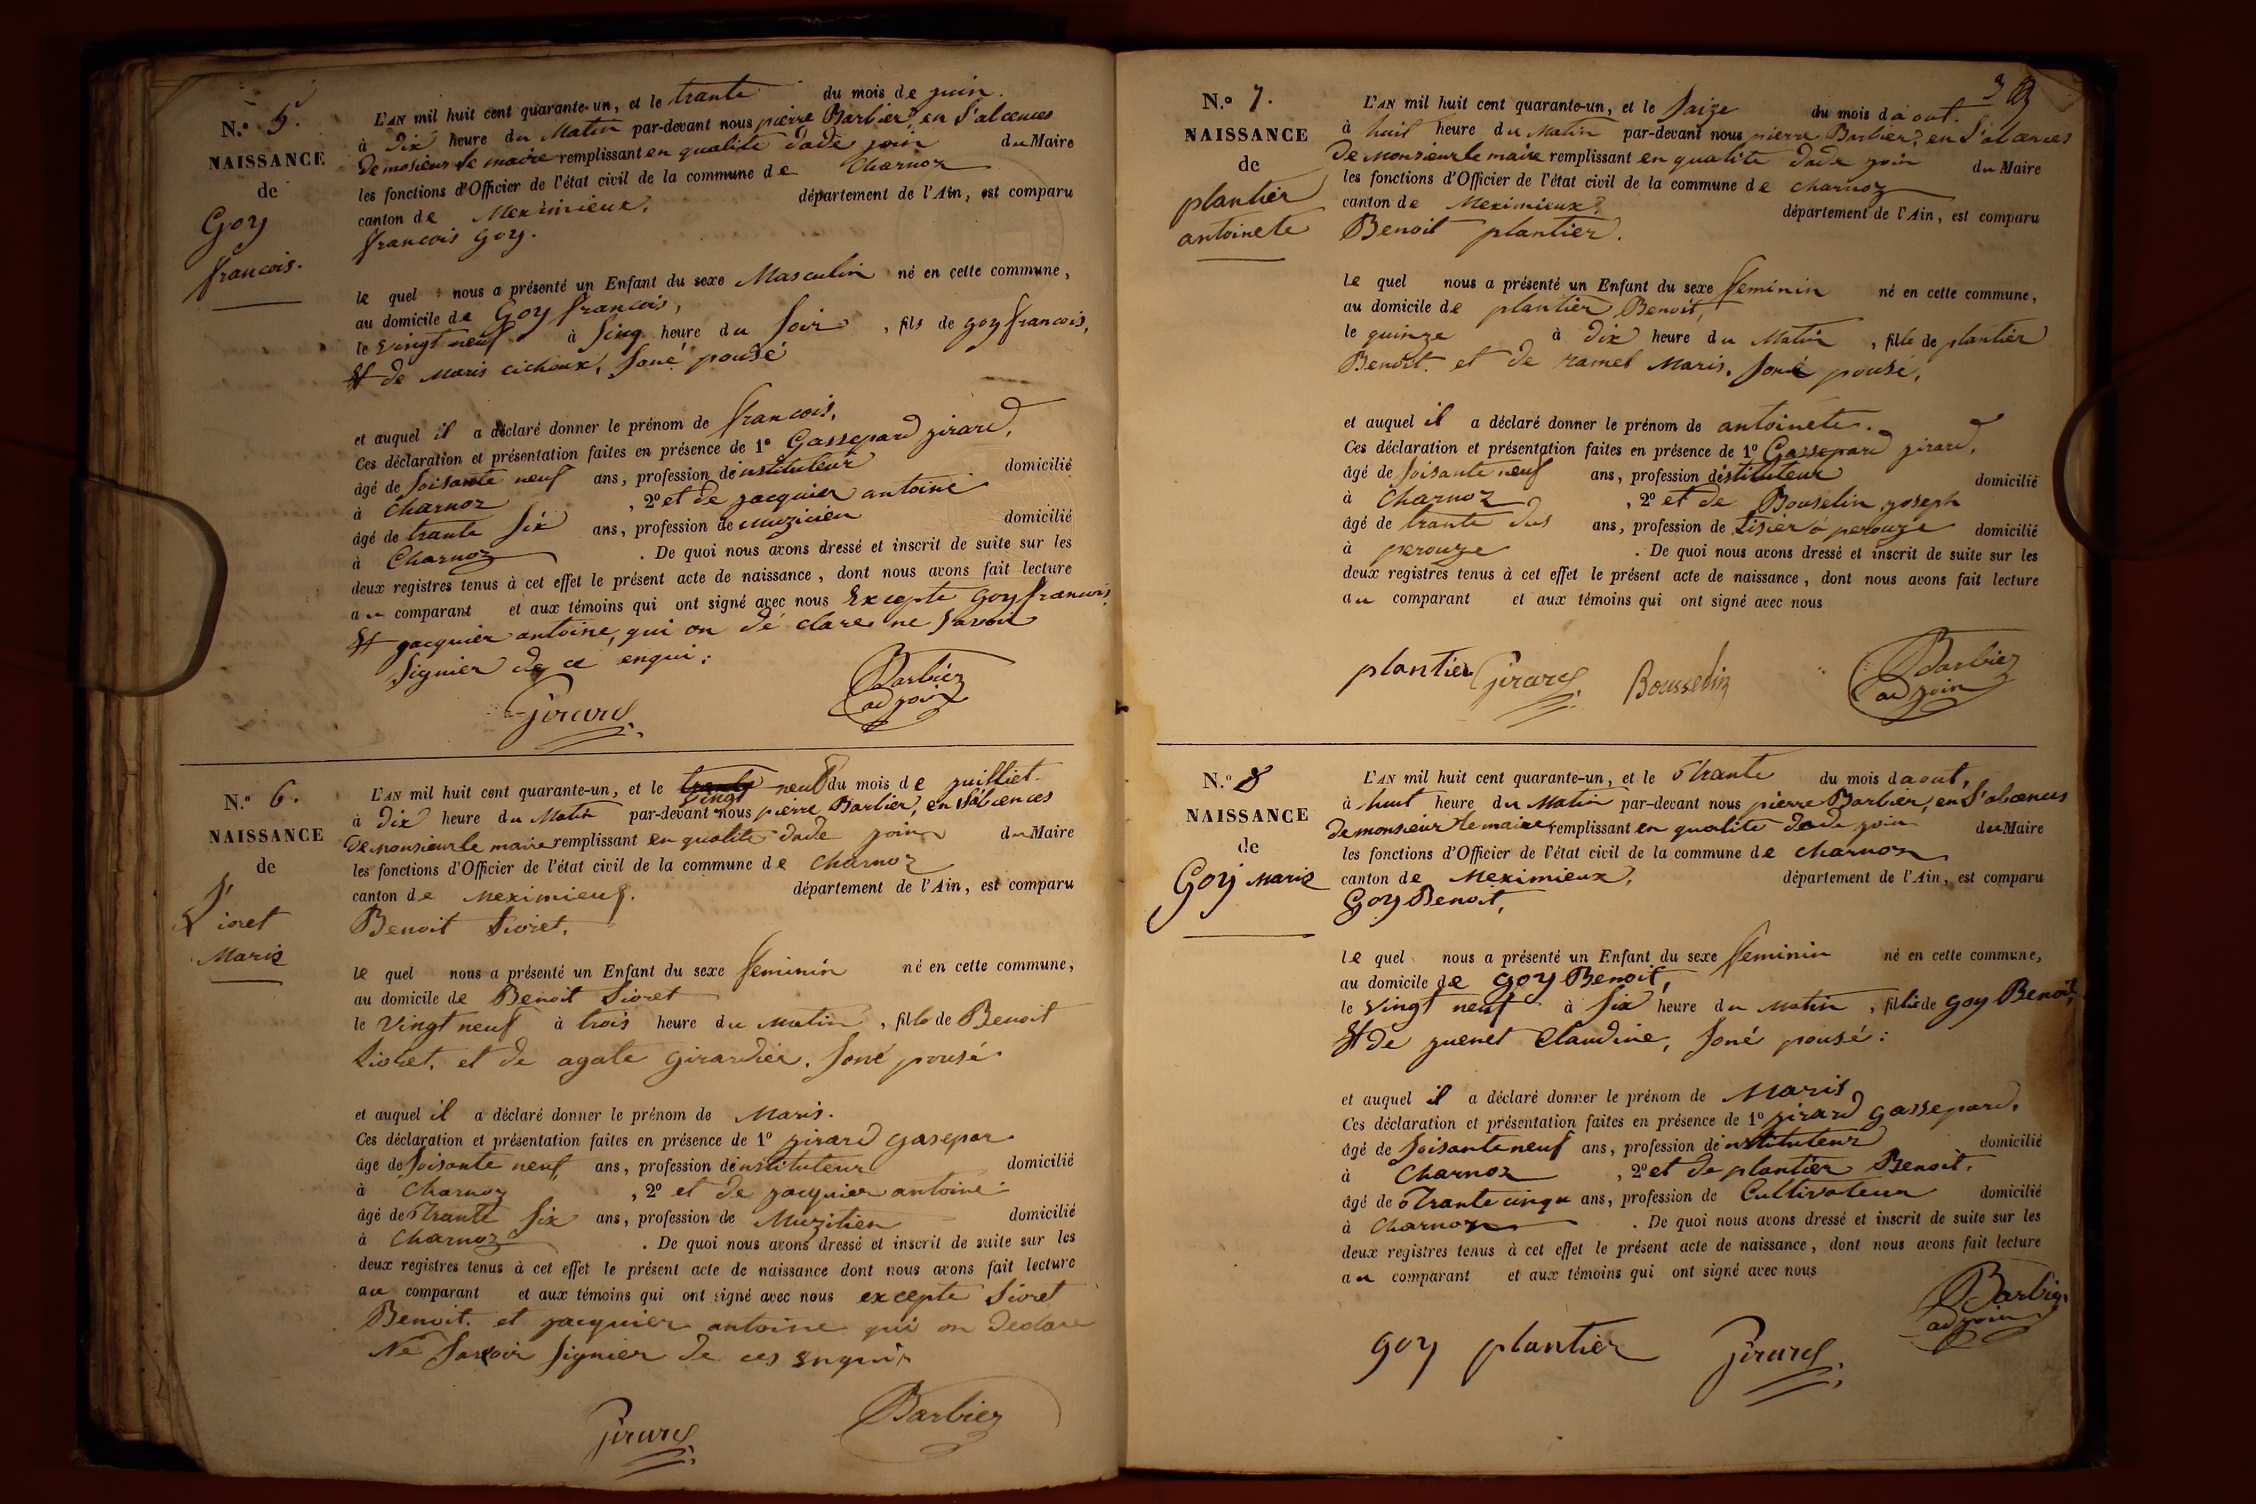 N.o 5.
NAISSANCE
de
Goy
francois.
L'AN mil huit cent quarante-un, et le trante du mois de juin.
à Dix heure du Matin par-devant nous pierre Barbier, en l'abcences
de mosieur le maire remplissant en qualité dade join du Maire
les fonctions d'Officier de l'état civil de la commune de Charnoz
canton de Meximieux. département de l'Ain, est comparu
francois Goy.
le quel nous a présenté un Enfant du sexe Masculin né en cette commune,
au domicile de Goy francois,
le vingt neuf à sinq heure du soir, fils de goy francois,
Et de Maris cichoux, soné pousé
et auquel il a déclaré donner le prénom de francois.
Ces déclaration et présentation faites en présence de 1o Gassepard girard,
âgé de soisante neuf ans, profession de instituteur domicilié
à Charnoz, 2o et de jacquier antoine
âgé de trante six ans, profession de muzicien domicilié
à Charnoz. De quoi nous avons dressé et inscrit de suite sur les
deux registres tenus à cet effet le présent acte de naissance, dont nous avons fait lecture
au comparant et aux témoins qui ont signé avec nous Excepte goy francois,
Et jacquier antoine, qui on dé clare ne savoir
signier de ce enqui:
Girard
Barbier
adjoin
N.o 6.
NAISSANCE
de
Sioret
Maris
L'AN mil huit cent quarante-un, et le vingt neuf du mois de juilliet
à Dix heure du Matin par-devant nous pierre Barbier, en l'abcences
de monsieur le maire remplissant en qualité dade join du Maire
les fonctions d'Officier de l'état civil de la commune de Charnoz
canton de meximieux. département de l'Ain, est comparu
Benoit Sioret.
le quel nous a présenté un Enfant du sexe feminin né en cette commune,
au domicile de Benoit Sioret
le vingt neuf à trois heure du matin, fille de Benoit
Sioret. et de agate girardier. soné pousé
et auquel il a déclaré donner le prénom de Maris.
Ces déclaration et présentation faites en présence de 1o girard gasepar
âgé de soisante neuf ans, profession de instituteur domicilié
à Charnoz, 2o et de jacquier antoine
âgé de trante six ans, profession de Muzitien domicilié
à Charnoz. De quoi nous avons dressé et inscrit de suite sur les
deux registres tenus à cet effet le présent acte de naissance dont nous avons fait lecture
au comparant et aux témoins qui ont signé avec nous excepte Sioret
Benoit. et jacquier antoine qui on declare
Ne savoir signier de ces enqui
Girard
Barbier
N.o 7.
NAISSANCE
de
plantier
antoinete
L'AN mil huit cent quarante-un, et le saize du mois daout.
à huit heure du Matin par-devant nous pierre Barbier, en l'abcences
de Monsieur le maire remplissant en qualité dade join du Maire
les fonctions d'Officier de l'état civil de la commune de charnoz
canton de Meximieux. département de l'Ain, est comparu
Benoit plantier.
le quel nous a présenté un Enfant du sexe feminin né en cette commune,
au domicile de plantier Benoit,
le quinze à dix heure du Matin, fille de plantier
Benoit. et de ramel Maris. soné pousé.
et auquel il a déclaré donner le prénom de antoinete.
Ces déclaration et présentation faites en présence de 1o Gassepard girard,
âgé de soisante neuf ans, profession de istituteur domicilié
à Charnoz, 2o et de Bouselin joseph
âgé de trante dus ans, profession de Lisier a perouze domicilié
à perouze. De quoi nous avons dressé et inscrit de suite sur les
deux registres tenus à cet effet le présent acte de naissance, dont nous avons fait lecture
au comparant et aux témoins qui ont signé avec nous
plantier Girard Bousselin
Barbier
adjoin
N.o 8
NAISSANCE
de
Goy Maris
L'AN mil huit cent quarante-un, et le trante du mois daout,
à huit heure du Matin par-devant nous pierre Barbier, en l'abcences
de monsieur le maire remplissant en qualité dade join du Maire
les fonctions d'Officier de l'état civil de la commune de charnoz
canton de Meximieux, département de l'Ain, est comparu
Goy Benoit,
le quel nous a présenté un Enfant du sexe feminin né en cette commune,
au domicile de goy Benoit,
le vingt neuf à six heure du matin, fille de goy Benoit,
Et de juenet Claudine, soné pousé:
et auquel il a déclaré donner le prénom de Maris
Ces déclaration et présentation faites en présence de 1o girard gassepard,
âgé de soisante neuf ans, profession de instituteur domicilié
à Charnoz, 2o et de plantier Benoit.
âgé de trante cinqu ans, profession de Cultivateur domicilié
à Charnoz. De quoi nous avons dressé et inscrit de suite sur les
deux registres tenus à cet effet le présent acte de naissance, dont nous avons fait lecture
au comparant et aux témoins qui ont signé avec nous
goy plantier Girard
Barbier
adjoin